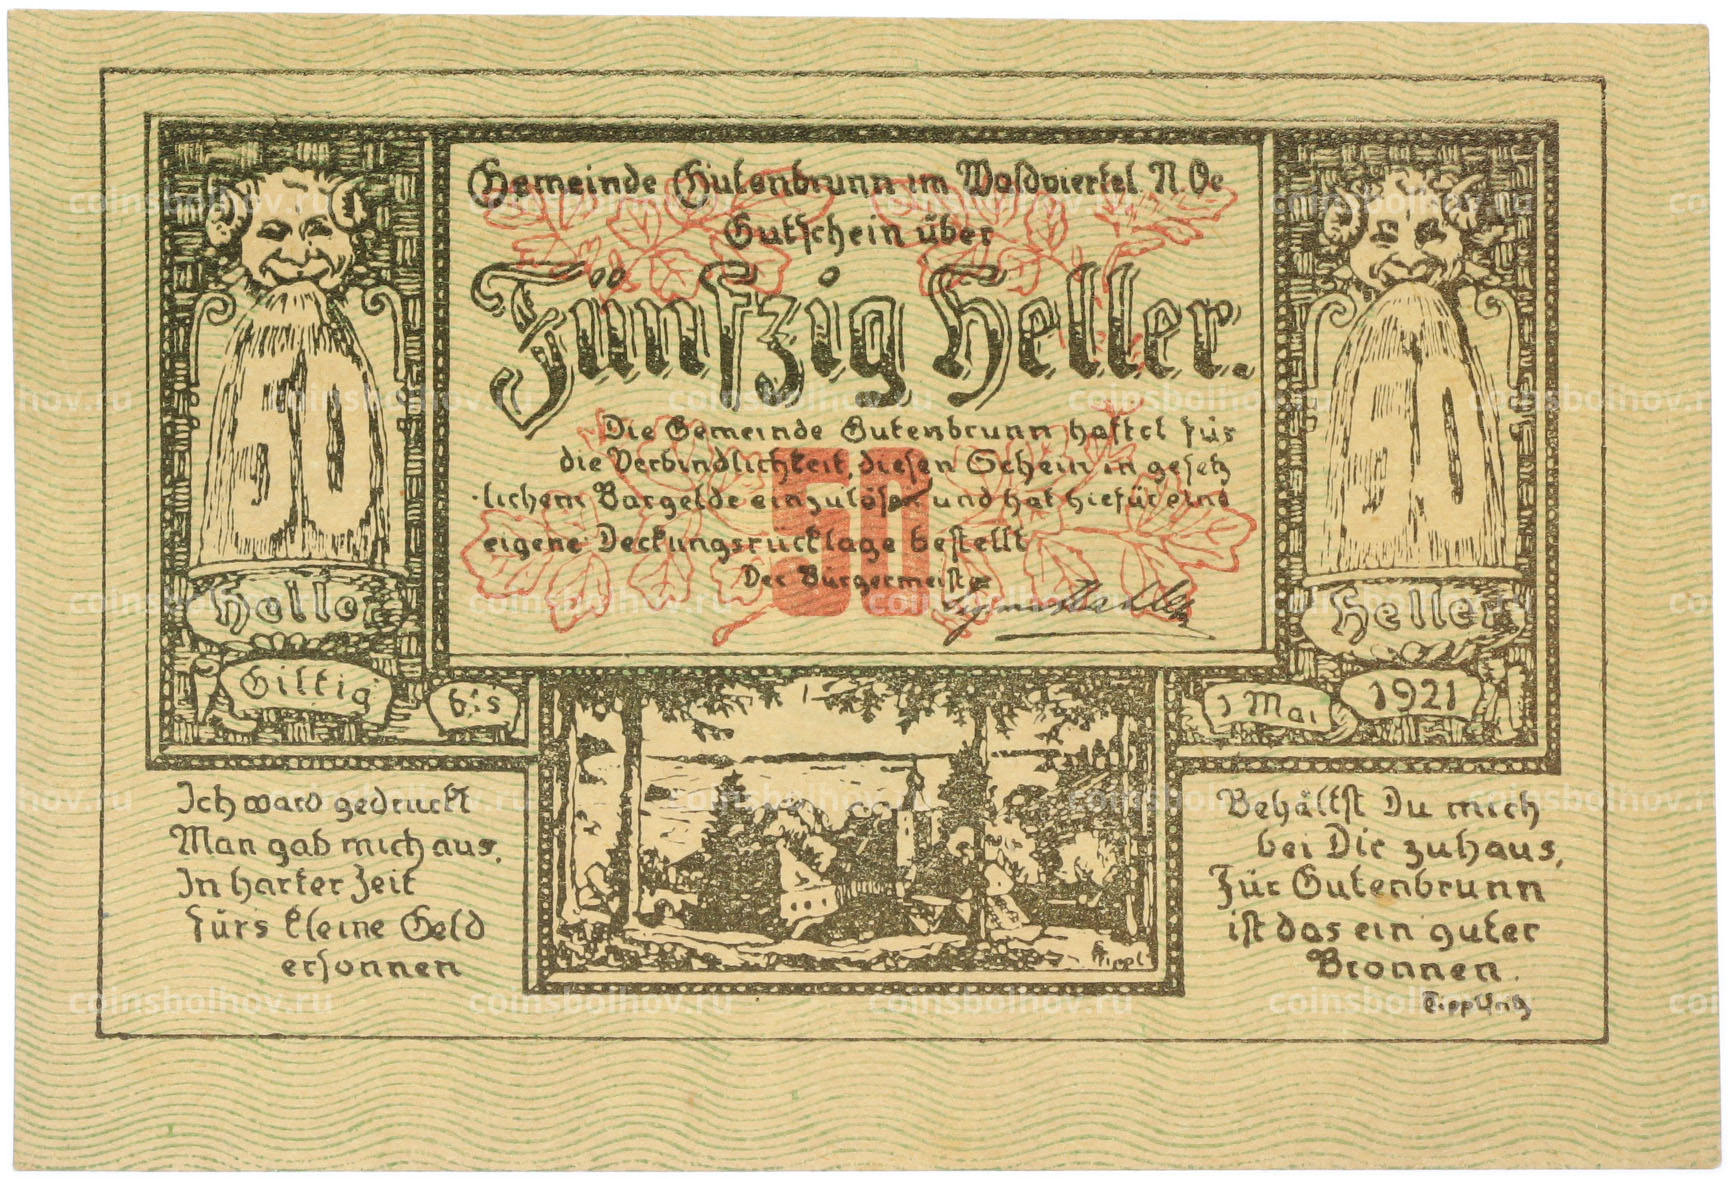 Gemeinde Gutenbrunn im Waldviertel N. Oe
Gutschein über
Fünfzig Heller.
Die Gemeinde Gutenbrunn haftet für
die Verbindlichkeit, diesen Schein in gesetz
lichem Bargelde einzulösen und hat hiefür eine
eigene Deckungsrücklage bestellt
Der Bürgermeister
50
50
Heller
50
Heller
Giltig bis 1 Mai 1921
Ich ward gedruckt
Man gab mich aus,
In harter Zeit
fürs kleine Geld
ersonnen
Behältst Du mich
bei Dir zuhaus,
Für Gutenbrunn
ist das ein guter
Bronnen.
Tippl
coinsbolhov.ru